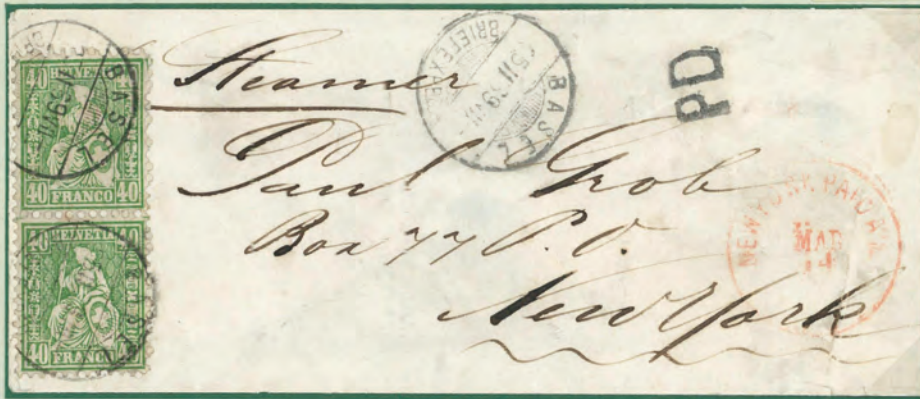 40 HELVETIA 40
40 FRANCO 40
40 HELVETIA 40
40 FRANCO 40
BASEL
BASEL
Steamer
PD
Paul Grob
Box 77 P.O.
New York
NEW YORK PAID ALL
MAR
14